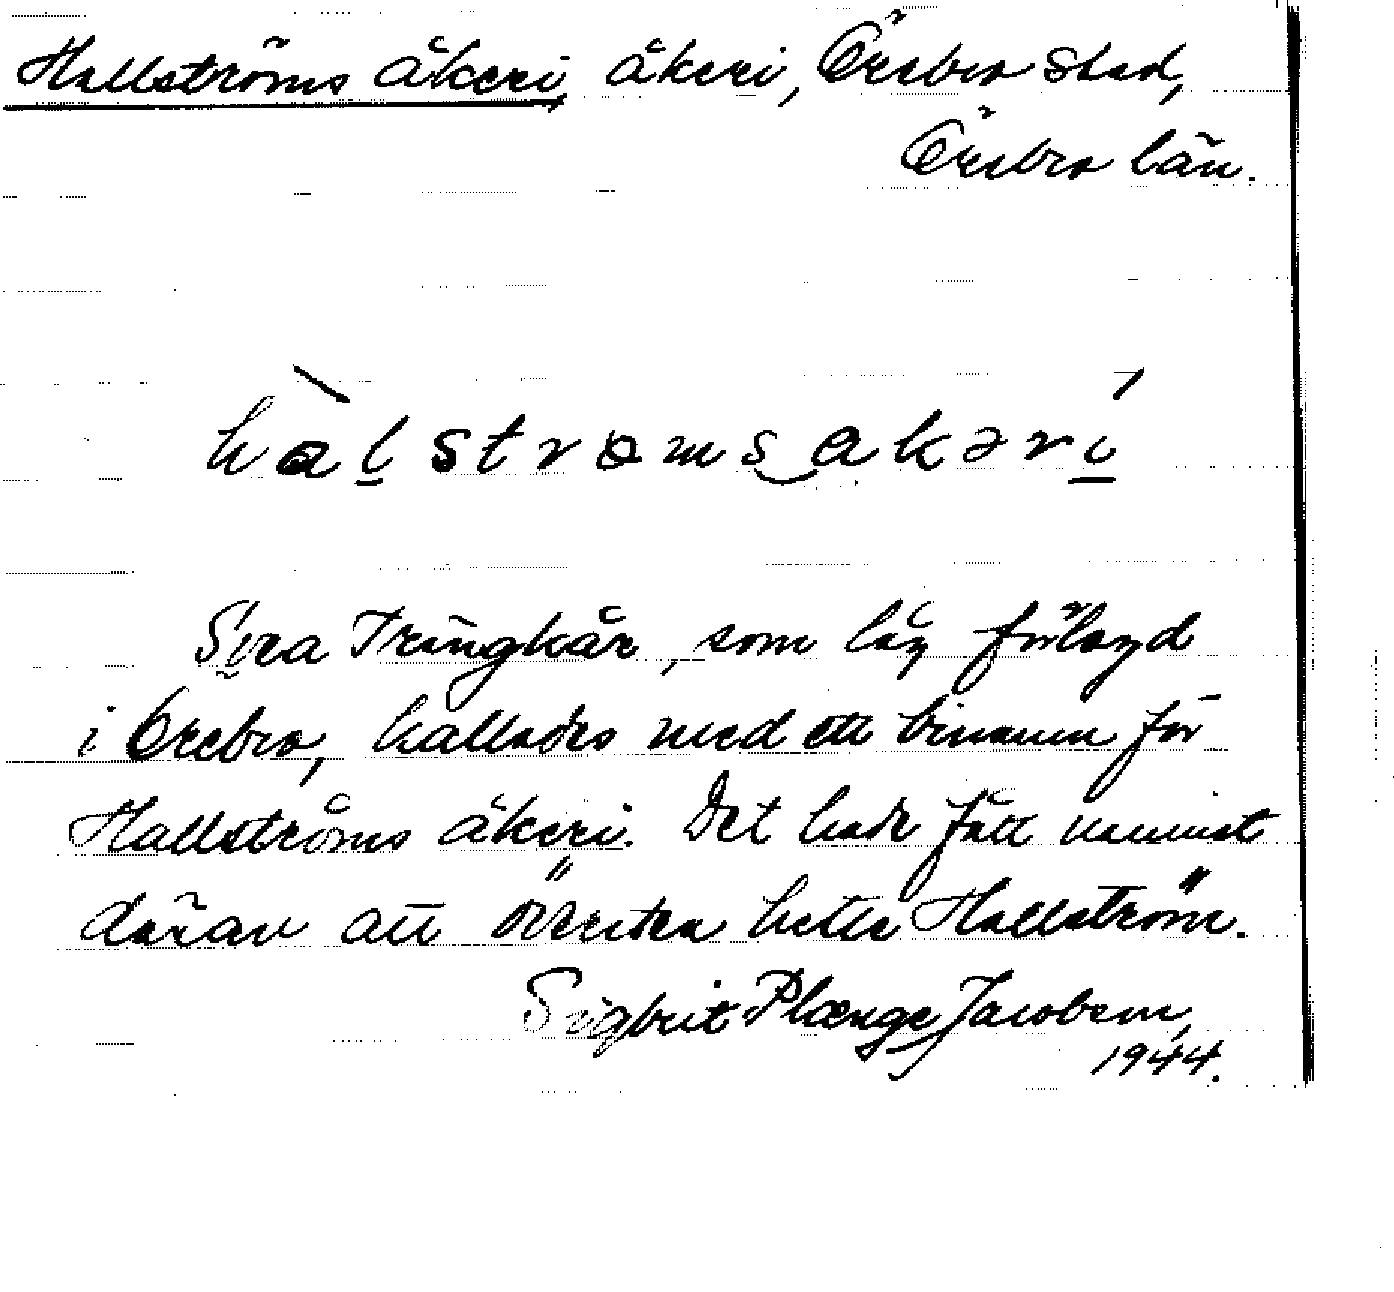 Hallströms åkeri, åkeri, Örebro stad,
Örebro län.
halstrømsakəri
Svea Trängkår, som låg förlagd
i Örebro, kallades med ett binamn för
Hallströms åkeri. Det hade fått namnet
därav att översten hette Hallström.
Sigbrit Plænge Jacobson,
1944.